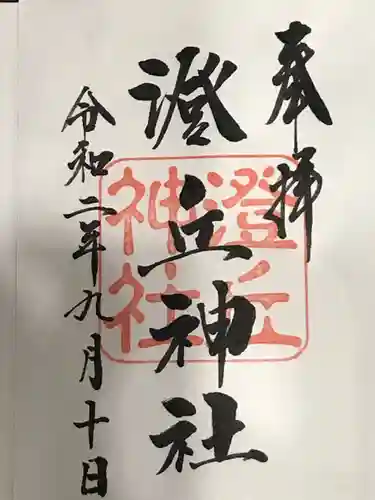 奉拝
澄丘神社
澄丘神社
令和二年九月十日